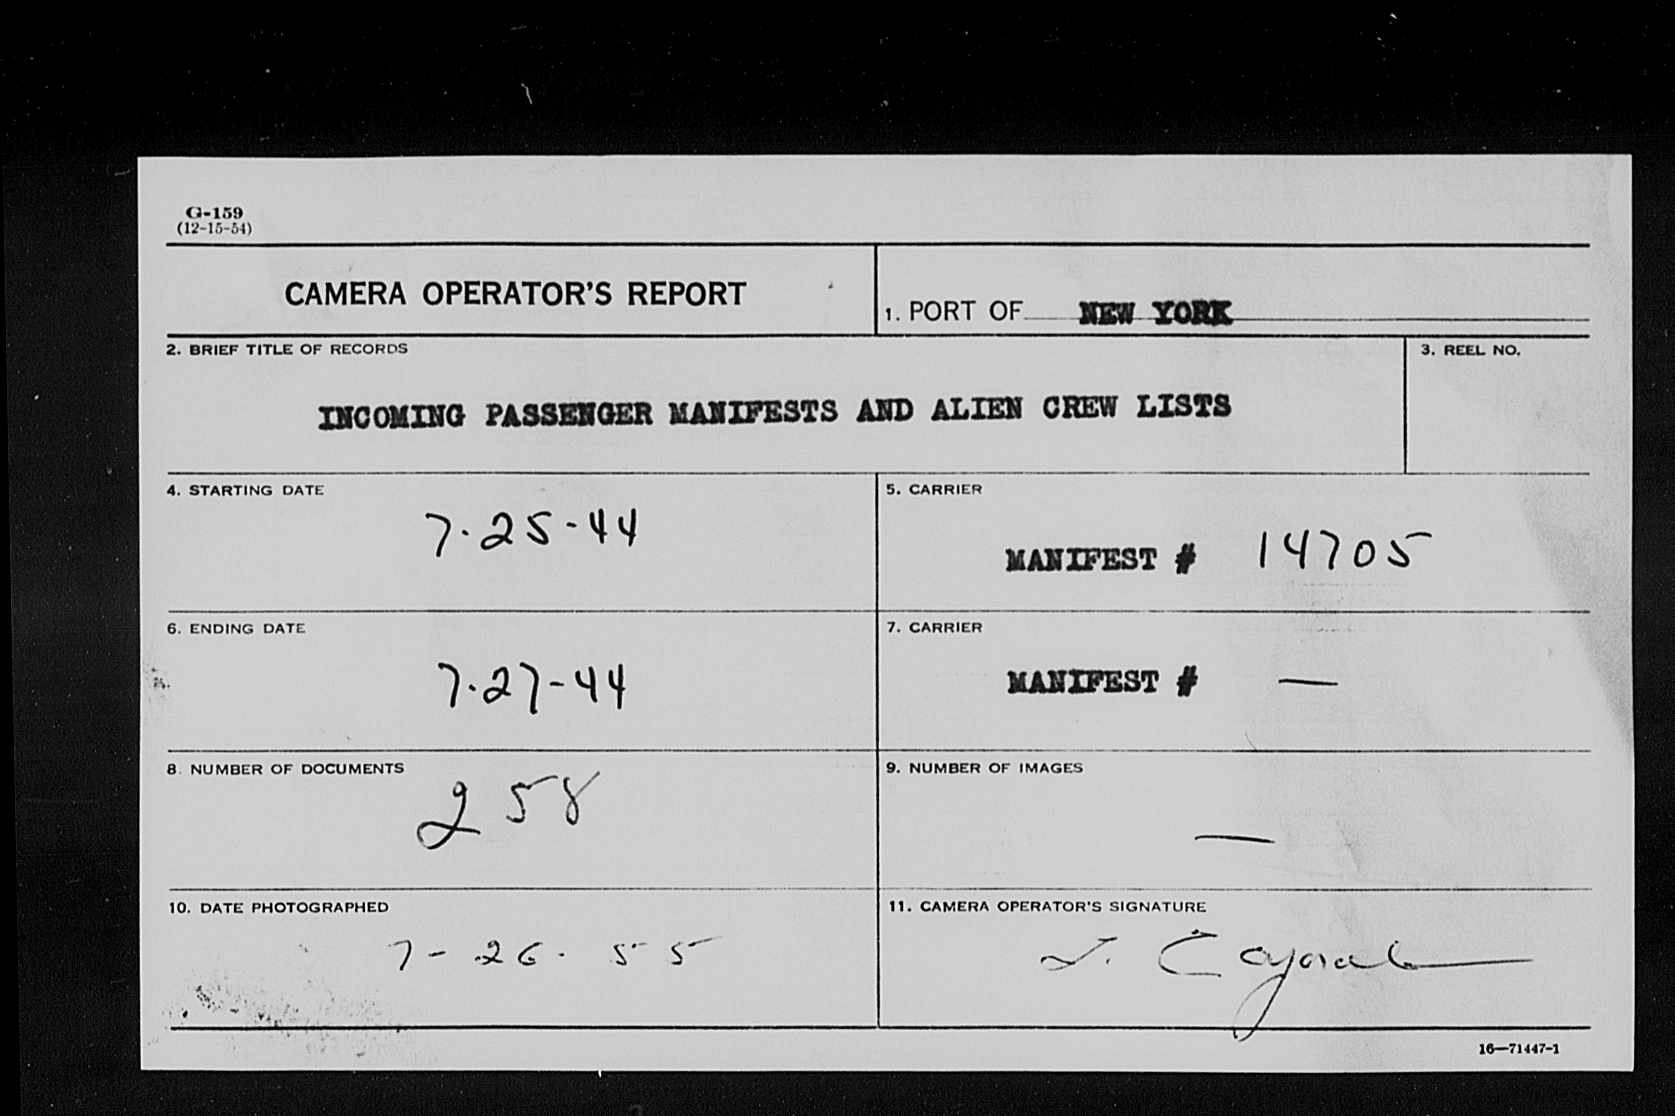 G-159
(12-15-54)
CAMERA OPERATOR'S REPORT
1. PORT OF NEW YORK
2. BRIEF TITLE OF RECORDS
3. REEL NO.
INCOMING PASSENGER MANIFESTS AND ALIEN CREW LISTS
4. STARTING DATE
7-25-44
5. CARRIER
MANIFEST # 14705
6. ENDING DATE
7-27-44
7. CARRIER
MANIFEST # —
8. NUMBER OF DOCUMENTS
258
9. NUMBER OF IMAGES
—
10. DATE PHOTOGRAPHED
7-26-55
11. CAMERA OPERATOR'S SIGNATURE
16—71447-1